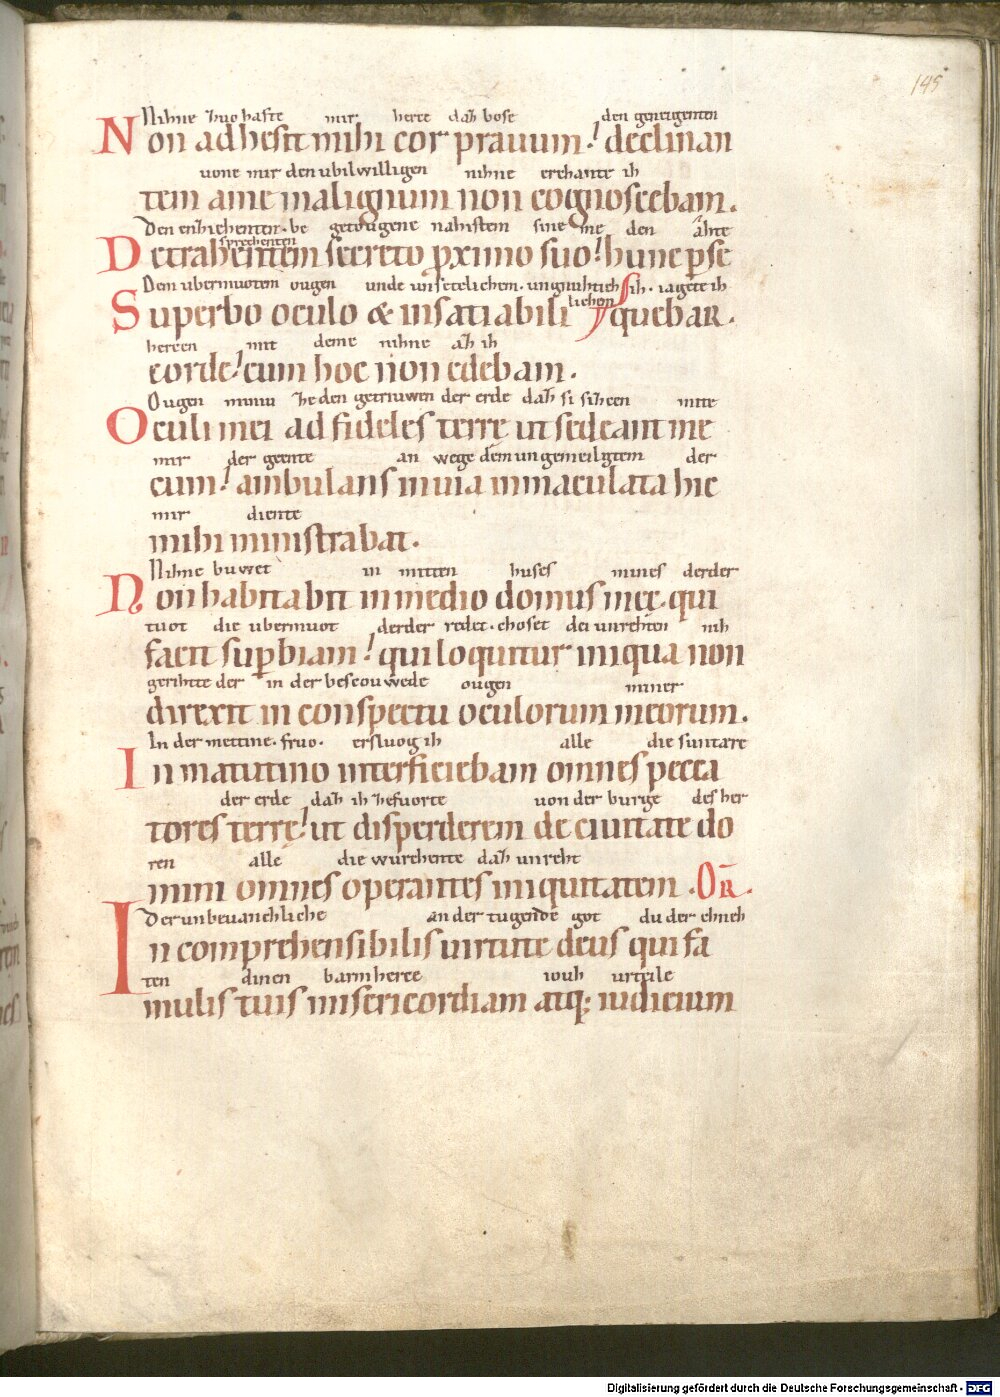 145
Nihne zuo hafte mir herce daz bose den geneigenten
Non adhesit mihi cor prauum! declinan
uone mir den ubilwilligen nihne erchante ih
tem a me malignum non cognoscebam.
Den enziehenten. be getougene nahistem sineme den âhte
sprechenten
Detrahentem secreto ꝓximo suo! hunc ꝑse
Dem ubermuotem ougen unde unsetelichem. ungnuhtich sih. iagete ih
lichen
Superbo oculo & insatiabili quebar.
hercen mit deme nihne âz ih
corde! cum hoc non edebam.
Ougen minu ze den getriuwen der erde daz si sizcen mite
Oculi mei ad fideles terrę ut sedeant me
mir der geente an wege dem ungemeiligtem der
cum! ambulans in uia inmaculata hic
mir diente
mihi ministrabat.
Nihne buwet in mitten huses mines derder
Non habitabit in medio domus meę. qui
tuot die ubermuot derder redet. choset dei unrehten nih
facit suꝑbiam! qui loquitur iniqua non
gerihtte der in der bescouwede ougen miner
direxit in conspectu oculorum meorum.
In der mettine. fruo. ersluog ih alle die suntare
In matutino interficiebam omnes pecca
der erde daz ih zefuorte uon der burge des her
tores terrę! ut disperderem de ciuitate do
ren alle die wurchente daz unreht
mini omnes operantes iniquitatem. OR̄.
Der unbeuanchliche an der tugende got du der chneh
Incomprehensibilis uirtute deus qui fa
ten dinen barmherce iouh urteile
mulis tuis misericordiam atq; iudicium
Digitalisierung gefördert durch die Deutsche Forschungsgemeinschaft - DFG